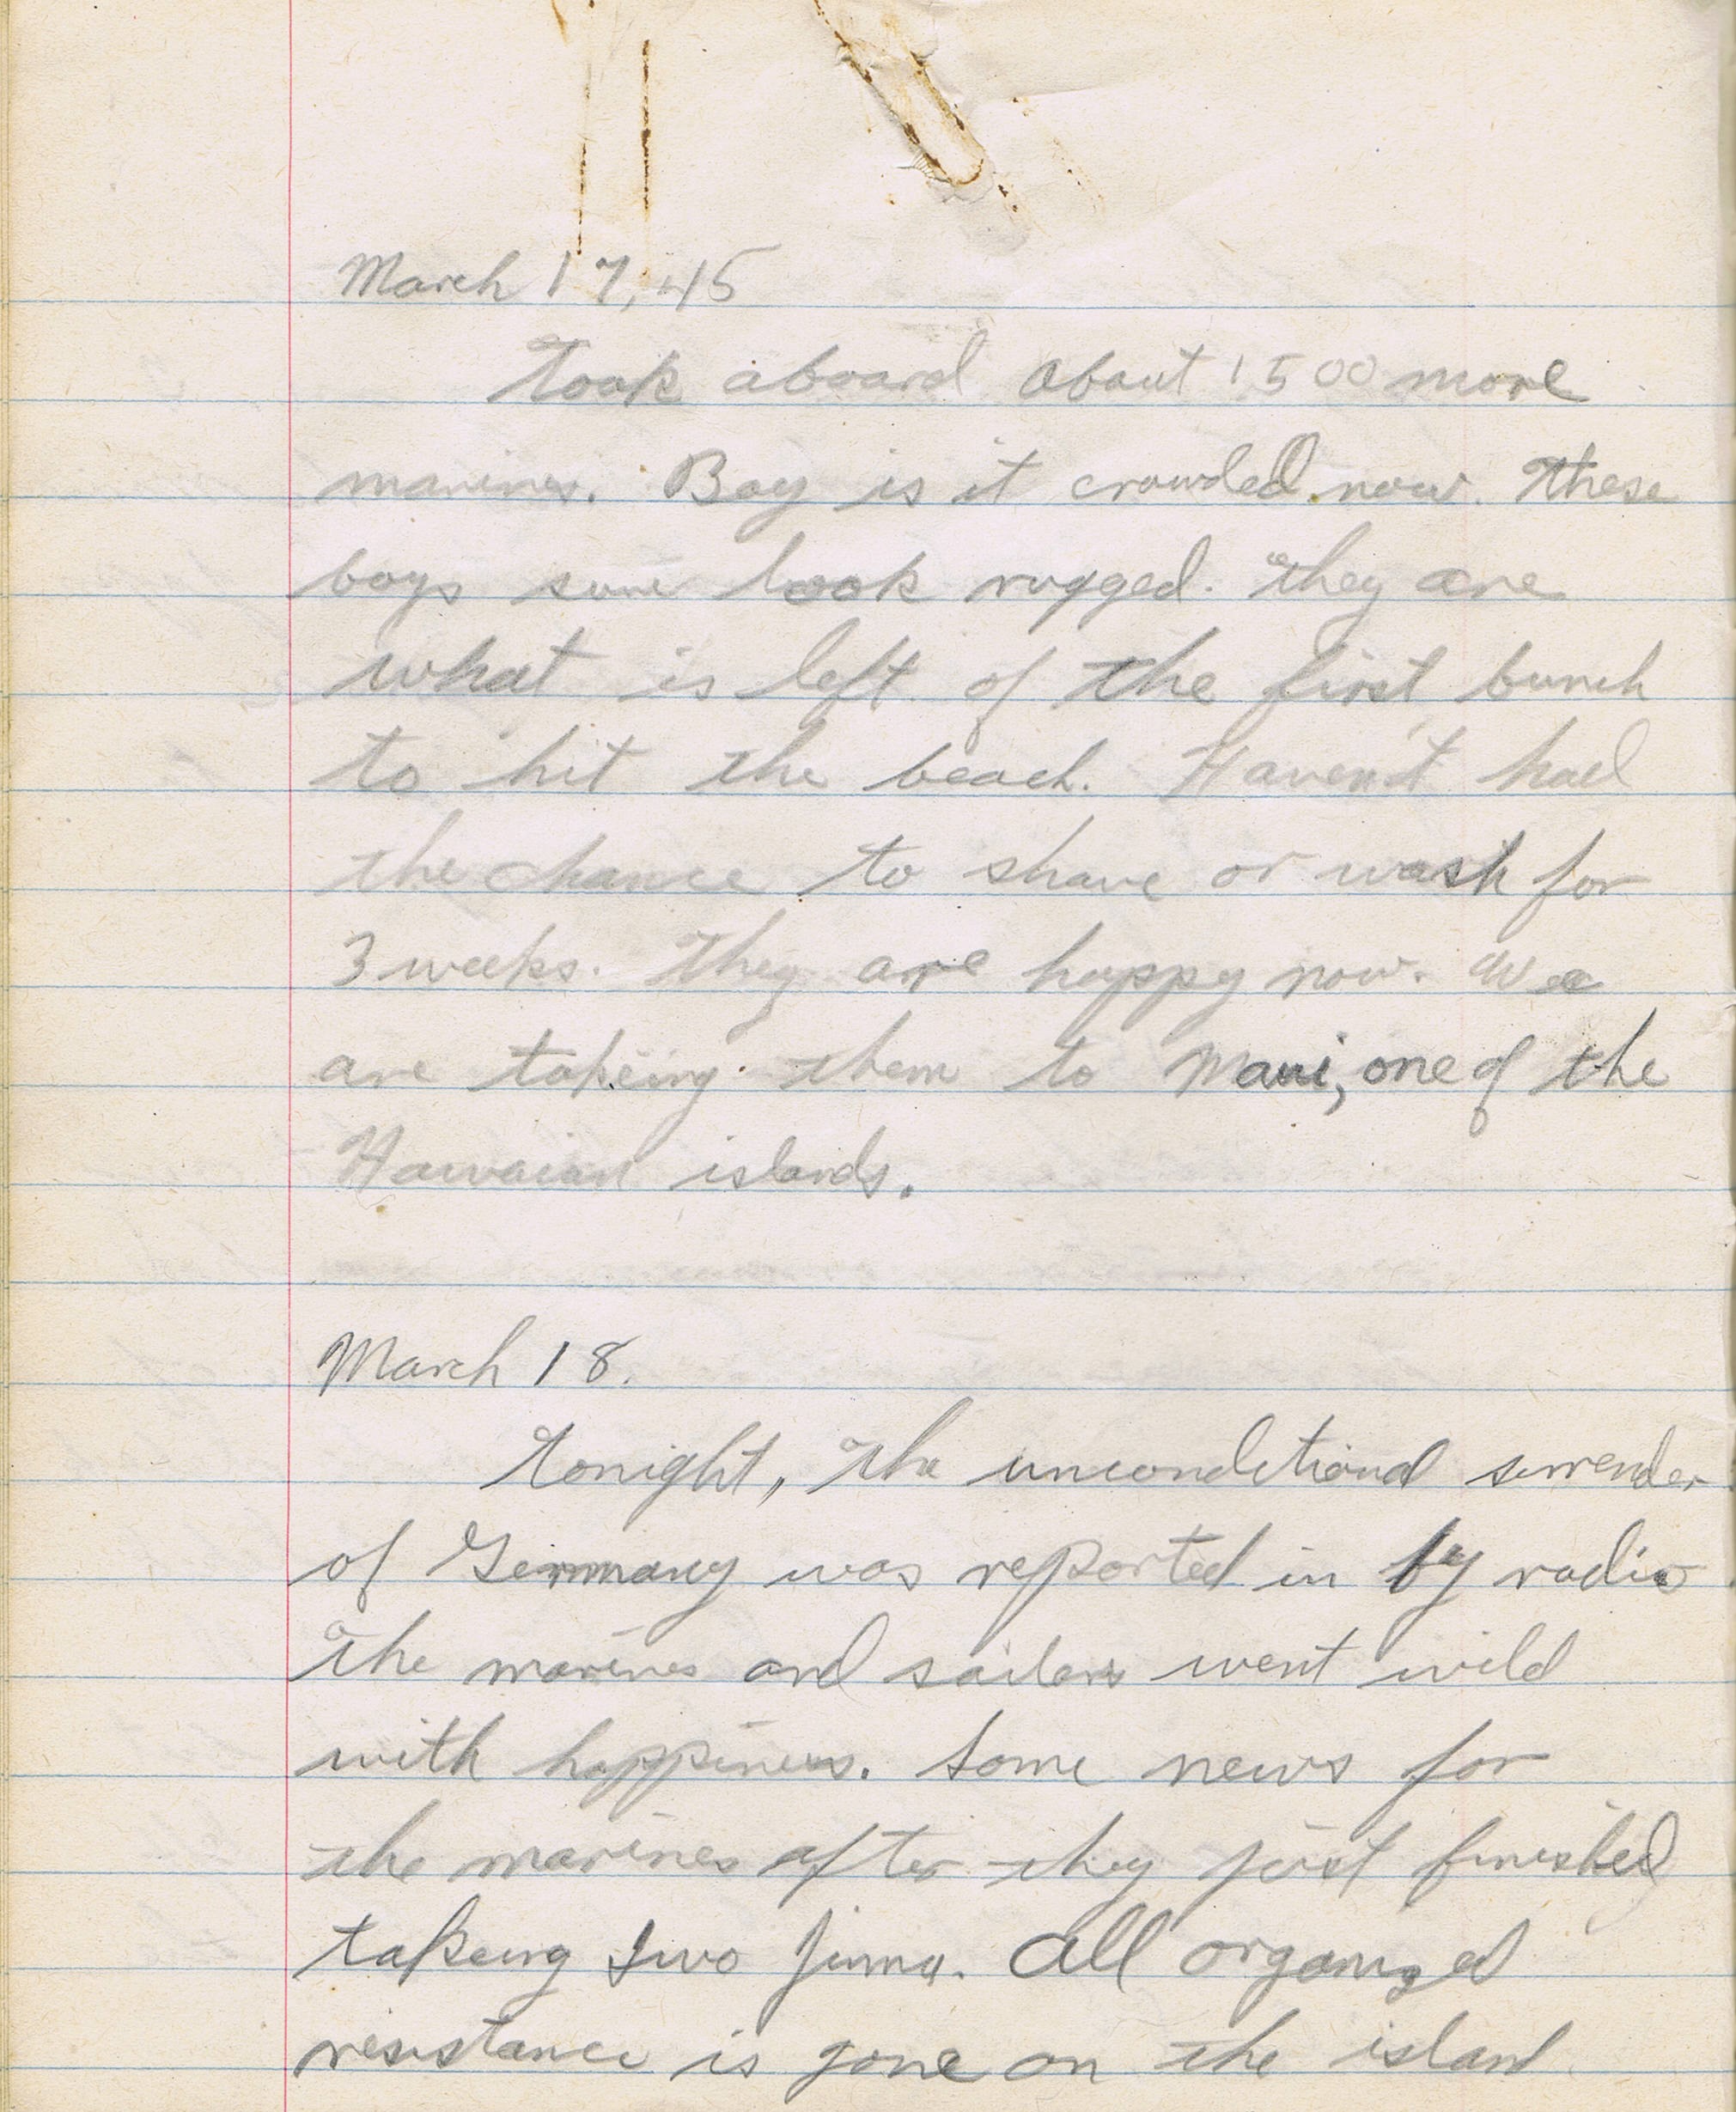 March 17, 45
Took aboard about 1500 more
marines. Boy is it crowded now. These
boys sure look rugged. They are
what is left of the first bunch
to hit the beach. Haven't had
the chance to shave or wash for
3 weeks. They are happy now. We
are takeing them to Maui, one of the
Hawaian islands.
March 18.
Tonight, the unconditional surrender
of Germany was reported in by radio
The marines and sailors went wild
with happiness. Some news for
the marines after they just finished
takeing Iwo Jima. All organized
resistance is gone on the island